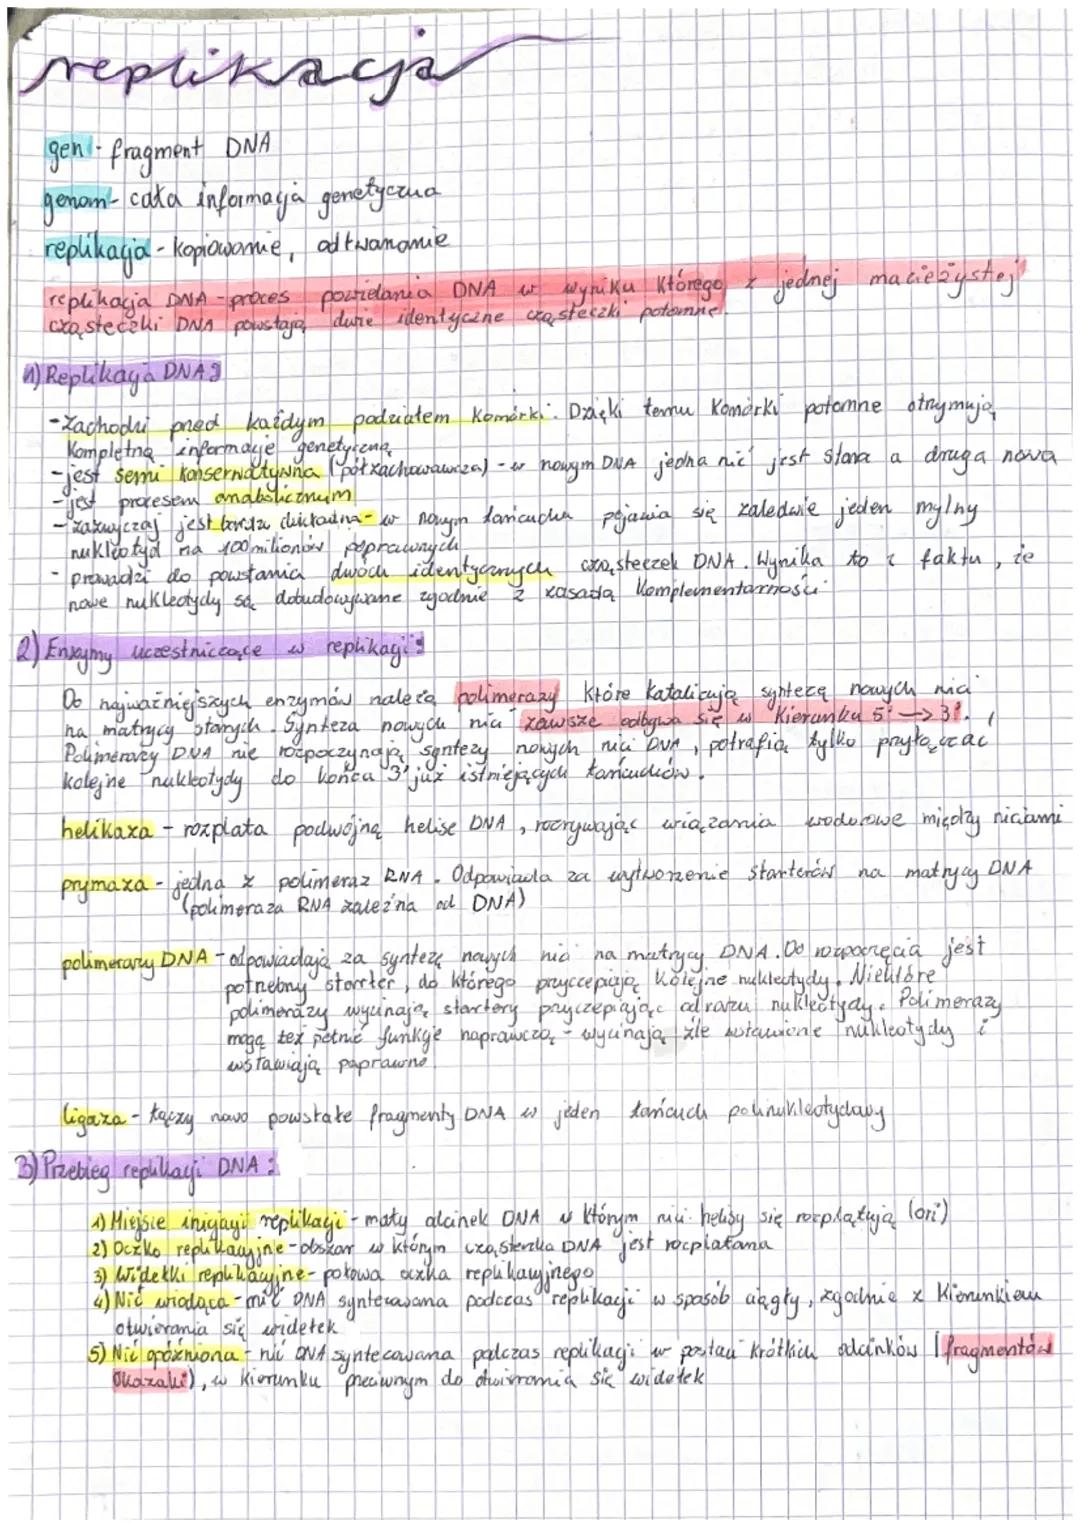 replikacja
gen - fragment DNA
genom - cała informacja genetyczna
replikacja - kopiowanie, odtwarzanie
replikacja DNA - proces powielania DNA w wyniku którego z jednej macieżystej
cząsteczki DNA powstają dwie identyczne cząsteczki potomne.
1) Replikacja DNA:
- Zachodzi przed każdym podziałem komórki. Dzięki temu komórki potomne otrzymują
kompletną informację genetyczną
- jest semi konserwatywna (pół zachowawcza) - w nowym DNA jedna nić jest stara a druga nowa
- jest procesem anabolicznym
- zazwyczaj jest bardzo dokładna - w nowym łańcuchu pojawia się zaledwie jeden mylny
nukleotyd na 100 milionów poprawnych
- prowadzi do powstania dwóch identycznych cząsteczek DNA. Wynika to z faktu, że
nowe nukleotydy są dobudowywane zgodnie z zasadą komplementarności
2) Enzymy uczestniczące w replikacji:
Do najważniejszych enzymów należą polimerazy które katalizują syntezę nowych nici
na matrycy starych. Synteza nowych nici zawsze odbywa się w kierunku 5' → 3'.
Polimerazy DNA nie rozpoczynają syntezy nowych nici DNA, potrafią tylko przyłączać
kolejne nukleotydy do końca 3' już istniejących łańcuchów.
helikaza - rozplata podwójną helisę DNA, rozrywając wiązania wodorowe między niciami
prymaza - jedna z polimeraz RNA. Odpowiada za wytworzenie starterów na matrycy DNA
(polimeraza RNA zależna od DNA)
polimerazy DNA - odpowiadają za syntezę nowych nici na matrycy DNA. Do rozpoczęcia jest
potrzebny starter, do którego przyczepiają kolejne nukleotydy. Niektóre
polimerazy wycinają startery przyczepiając od razu nukleotydy. Polimerazy
mogą też pełnić funkcje naprawczą - wycinają źle wstawione nukleotydy i
wstawiają poprawne.
ligaza - łączy nowo powstałe fragmenty DNA w jeden łańcuch polinukleotydowy
3) Przebieg replikacji DNA:
1) Miejsce inicjacji replikacji - mały odcinek DNA w którym nici helisy się rozplątują (ori)
2) Oczko replikacyjne - obszar w którym cząsteczka DNA jest rozplatana
3) Widełki replikacyjne - połowa oczka replikacyjnego
4) Nić wiodąca - nić DNA syntezowana podczas replikacji w sposób ciągły, zgodnie z kierunkiem
otwierania się widełek
5) Nić opóźniona - nić DNA syntezowana podczas replikacji w postaci krótkich odcinków (fragmentów
Okazaki), w kierunku przeciwnym do otwierania się widełek